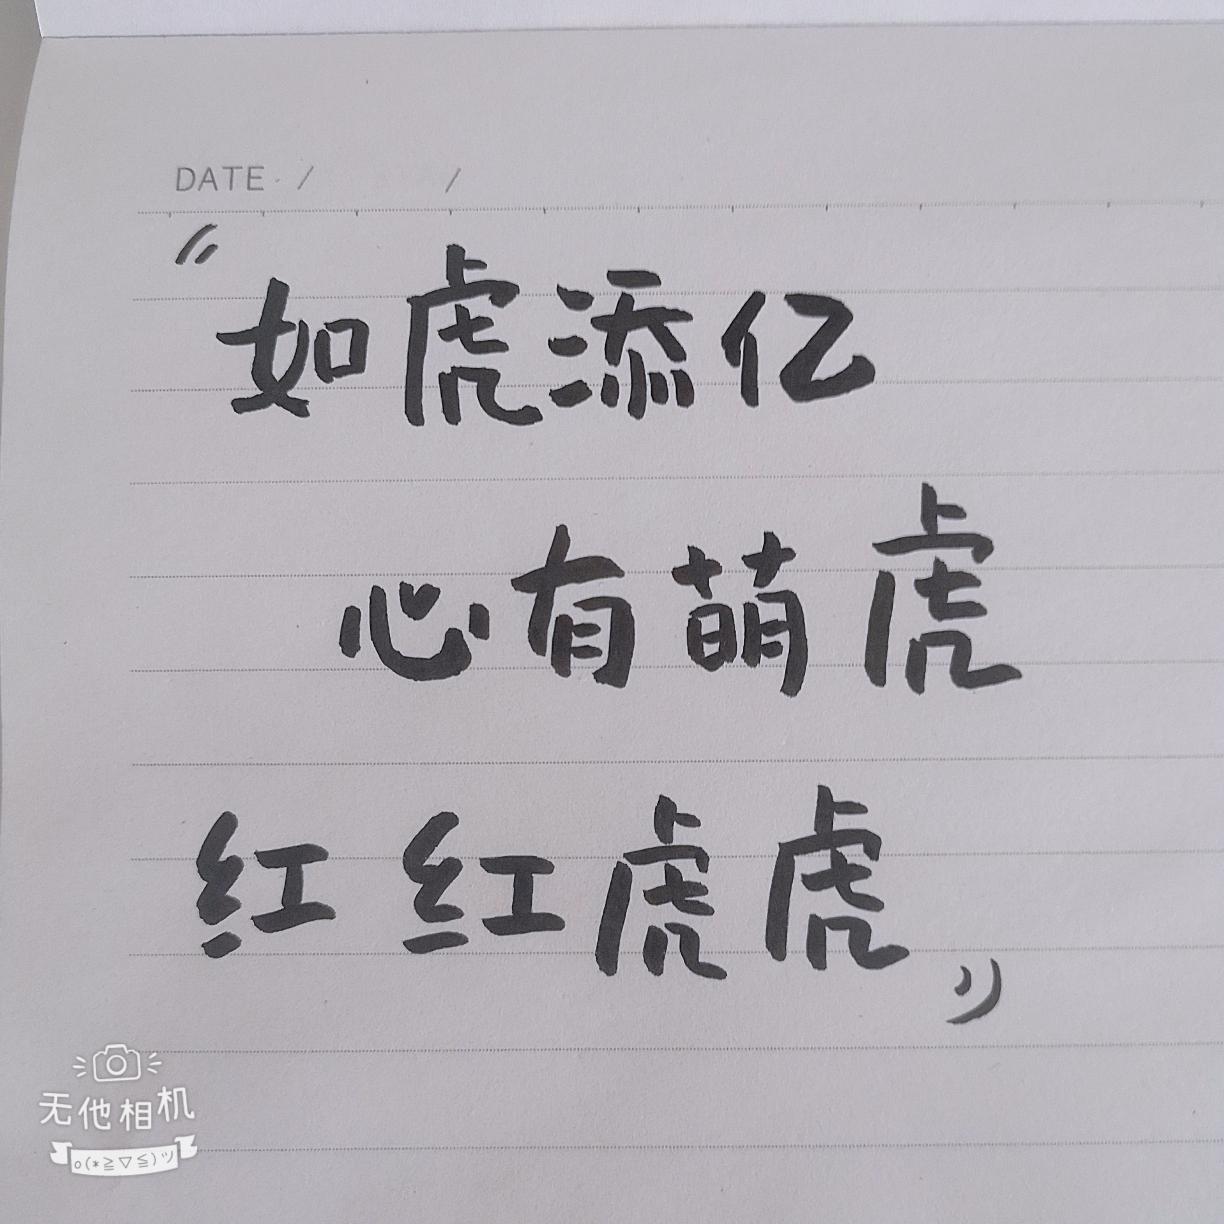 DATE / /
“如虎添亿
心有萌虎
红红虎虎”
无他相机
o(*≧▽≦)ツ